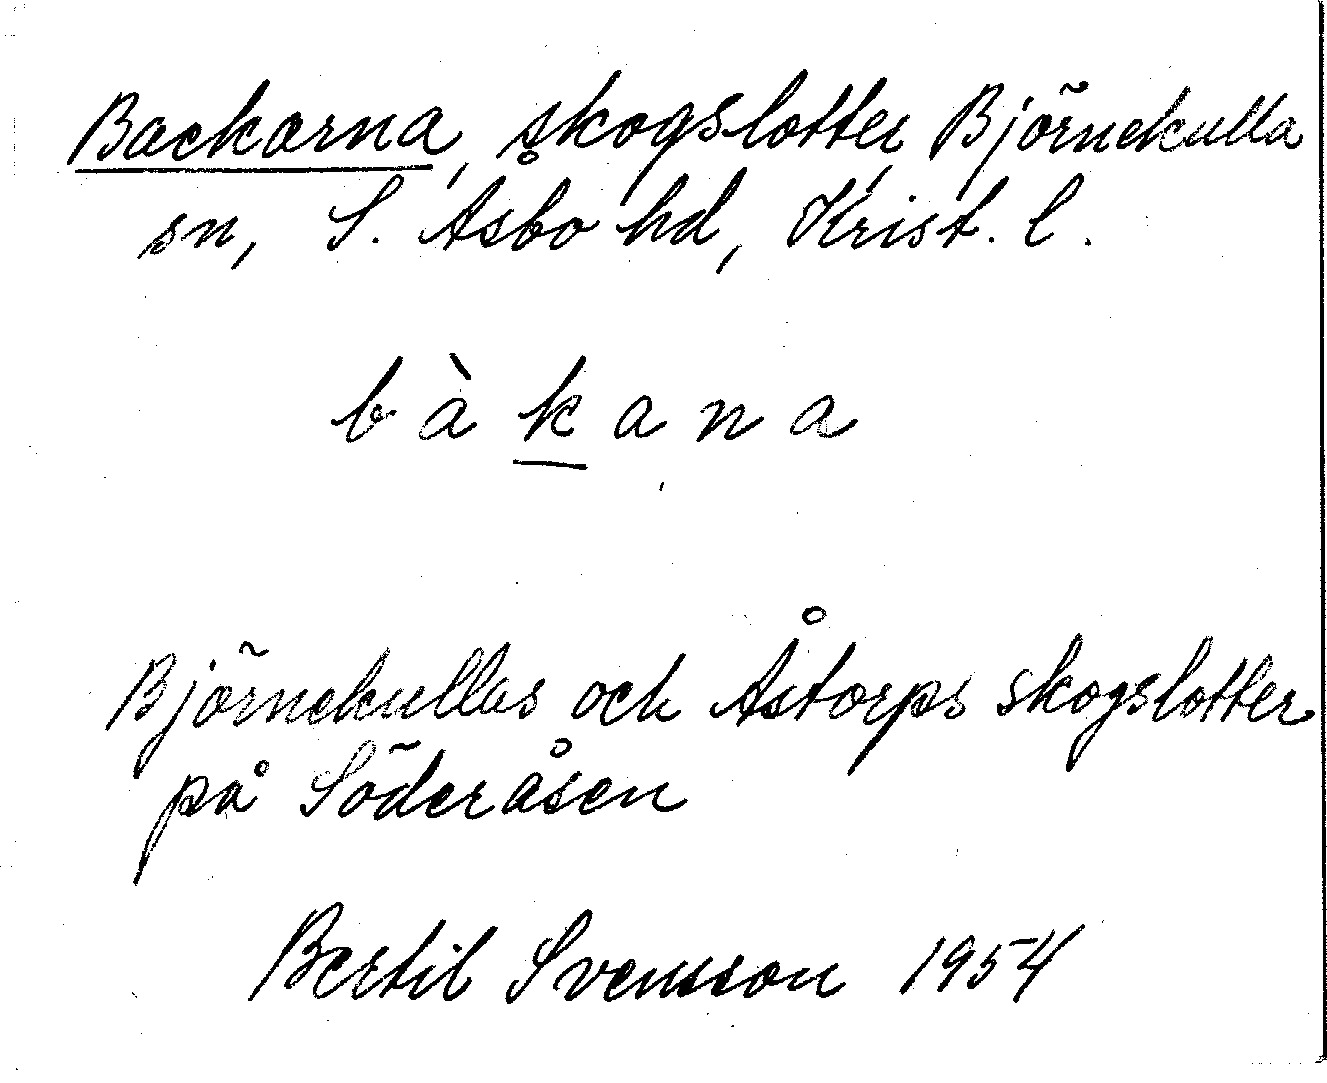 Backarna, skogslotter, Björnekulla
sn, S. Åsbo hd, Krist. l.
bàkana
Björnekullas och Åstorps skogslotter
på Söderåsen
Bertil Svensson 1954